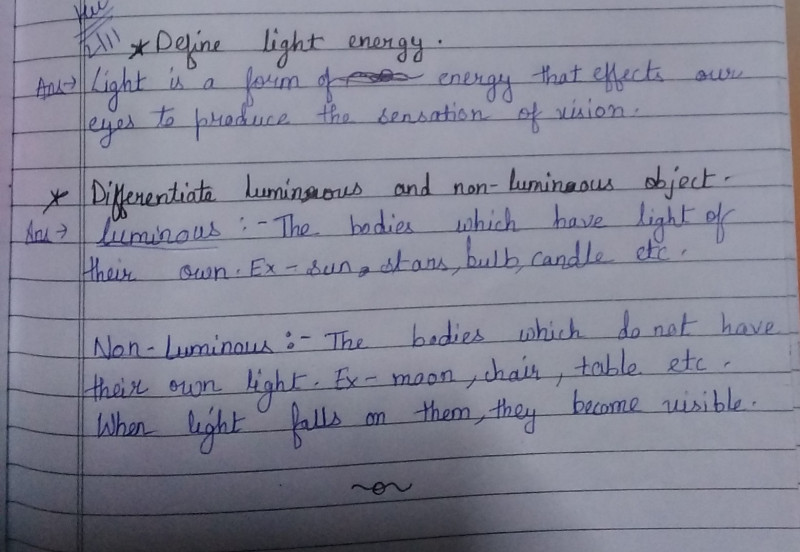 * Define light energy.
Ans→ Light is a form of energy that effects our
eyes to produce the sensation of vision.
* Differentiate luminuous and non-luminuous object.
Ans→ luminous :- The bodies which have light of
their own. Ex - sun, stars, bulb, candle etc.
Non-Luminous :- The bodies which do not have
their own light. Ex - moon, chair, table etc.
When light falls on them, they become visible.